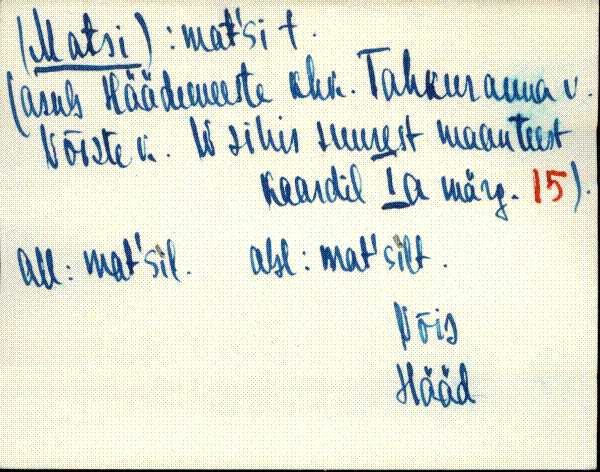 (Matsi) : mat'si t.
(asub Häädemeeste khk. Tahkuranna v.
Võiste k. W sihis suurest maanteest
kaardil Ia märg. 15).
all: mat'sil. abl: mat'silt.
Võis
Hääd